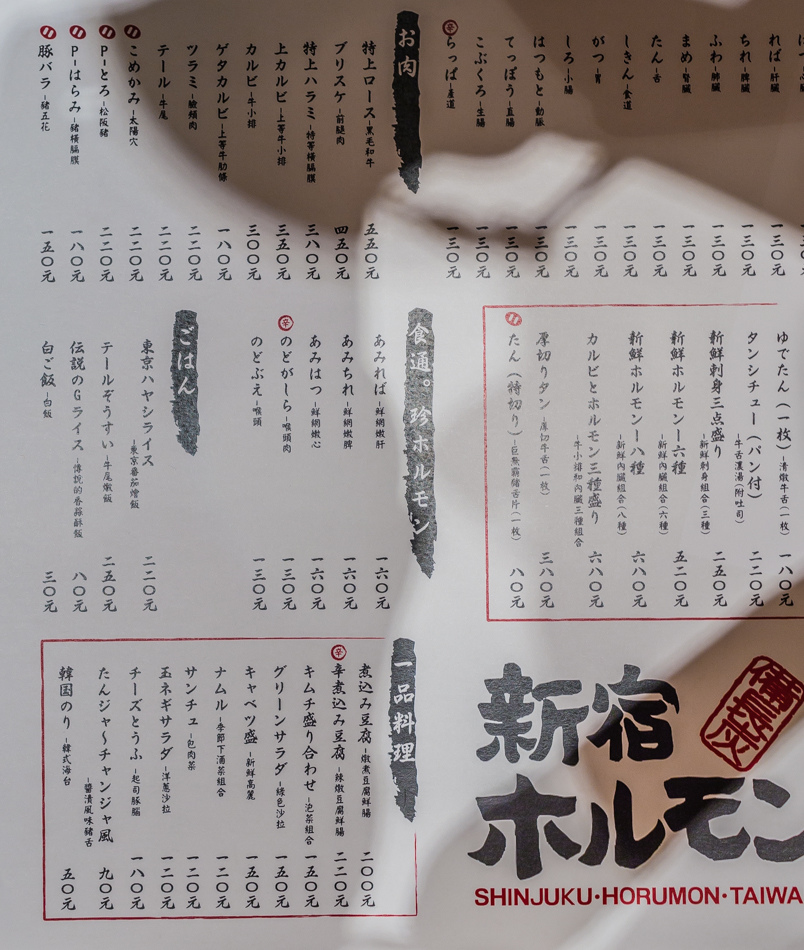 れば-肝臟 一三〇元
ちれ-脾臟 一三〇元
ふわ-肺臟 一三〇元
まめ-腎臟 一三〇元
たん-舌 一三〇元
しきん-食道 一三〇元
がつ-胃 一三〇元
しろ-小腸 一三〇元
はつもと-動脈 一三〇元
てっぽう-直腸 一三〇元
こぶくろ-生腸 一三〇元
辛 らっぱ-產道 一三〇元
お肉
特上ロース-黑毛和牛 五五〇元
ブリスケ-前腿肉 四五〇元
特上ハラミ-特等橫膈膜 三八〇元
上カルビ-上等牛小排 三五〇元
カルビ-牛小排 三〇〇元
ゲタカルビ-上等牛肋條 一八〇元
ツラミ-臉頰肉 二二〇元
テール-牛尾 二二〇元
こめかみ-太陽穴 二二〇元
P-とろ-松阪豬 二二〇元
P-はらみ-豬橫膈膜 一八〇元
豚バラ-豬五花 一五〇元
ゆでたん(一枚)-清燉牛舌(一枚) 一八〇元
タンシチュー(パン付)-牛舌濃湯(附吐司) 二二〇元
新鮮刺身三点盛り-新鮮刺身組合(三種) 二五〇元
新鮮ホルモン-六種-新鮮內臟組合(六種) 五二〇元
新鮮ホルモン-八種-新鮮內臟組合(八種) 六八〇元
カルビとホルモン三種盛り-牛小排和內臟三種組合 六八〇元
厚切りタン-厚切牛舌(一枚) 三八〇元
たん(特切り)-巨無霸豬舌片(一枚) 八〇元
食通。珍ホルモン
あみれば-鮮網嫩肝 一六〇元
あみちれ-鮮網嫩脾 一六〇元
あみはつ-鮮網嫩心 一六〇元
辛 のどがしら-喉頭肉 一三〇元
のどぶえ-喉頭 一三〇元
ごはん
東京ハヤシライス-東京番茄燴飯 二二〇元
テールぞうすい-牛尾燉飯 二五〇元
伝説のGライス-傳說的香蒜酥飯 八〇元
白ご飯-白飯 三〇元
一品料理
煮込み豆腐-燉煮豆腐鮮腸 二〇〇元
辛 辛煮込み豆腐-辣燉豆腐鮮腸 二二〇元
キムチ盛り合わせ-泡菜組合 一五〇元
グリーンサラダ-綠色沙拉 一五〇元
キャベツ盛-新鮮高麗 一五〇元
ナムル-季節下酒菜組合 一二〇元
サンチュ-包肉菜 一二〇元
玉ネギサラダ-洋蔥沙拉 一二〇元
チーズとうふ-起司豚腦 一八〇元
たんジャ〜チャンジャ風-醬漬風味豬舌 九〇元
韓国のり-韓式海台 五〇元
新宿
ホルモン
SHINJUKU·HORUMON·TAIWA